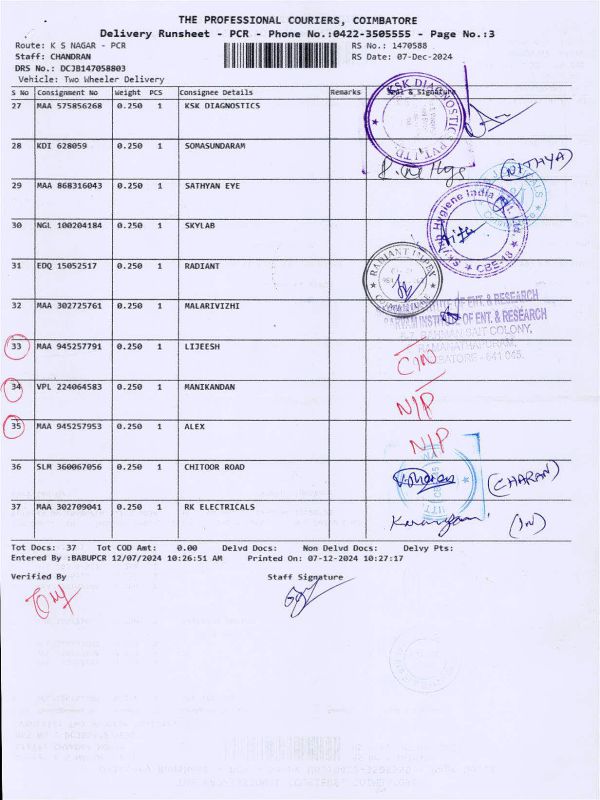 THE PROFESSIONAL COURIERS, COIMBATORE
Delivery Runsheet - PCR - Phone No.:0422-3505555 - Page No.:3
Route: K S NAGAR - PCR
RS No.: 1470588
Staff: CHANDRAN
RS Date: 07-Dec-2024
DRS No.: DCJB147058803
Vehicle: Two Wheeler Delivery
S No Consignment No Weight PCS Consignee Details Remarks Seal & Signature
27 MAA 575856268 0.250 1 KSK DIAGNOSTICS
KSK DIAGNOSTICS PVT. LTD.
28 KDI 628059 0.250 1 SOMASUNDARAM
(NITHYA)
29 MAA 868316043 0.250 1 SATHYAN EYE
Hygiene India Pvt. Ltd.
30 NGL 100204184 0.250 1 SKYLAB
CBE-18
31 EDQ 15052517 0.250 1 RADIANT
RANJANT IMPEX
32 MAA 302725761 0.250 1 MALARIVIZHI
INSTITUTE OF ENT. & RESEARCH
COLONY,
RAMANATHAPURAM,
641 045.
33 MAA 945257791 0.250 1 LIJEESH
C/N
34 VPL 224064583 0.250 1 MANIKANDAN
N/P
35 MAA 945257953 0.250 1 ALEX
N/P
36 SLM 360067056 0.250 1 CHITOOR ROAD
(CHARAN)
37 MAA 302709041 0.250 1 RK ELECTRICALS
(IN)
Tot Docs: 37 Tot COD Amt: 0.00 Delvd Docs: Non Delvd Docs: Delvy Pts:
Entered By :BABUPCR 12/07/2024 10:26:51 AM Printed On: 07-12-2024 10:27:17
Verified By Staff Signature